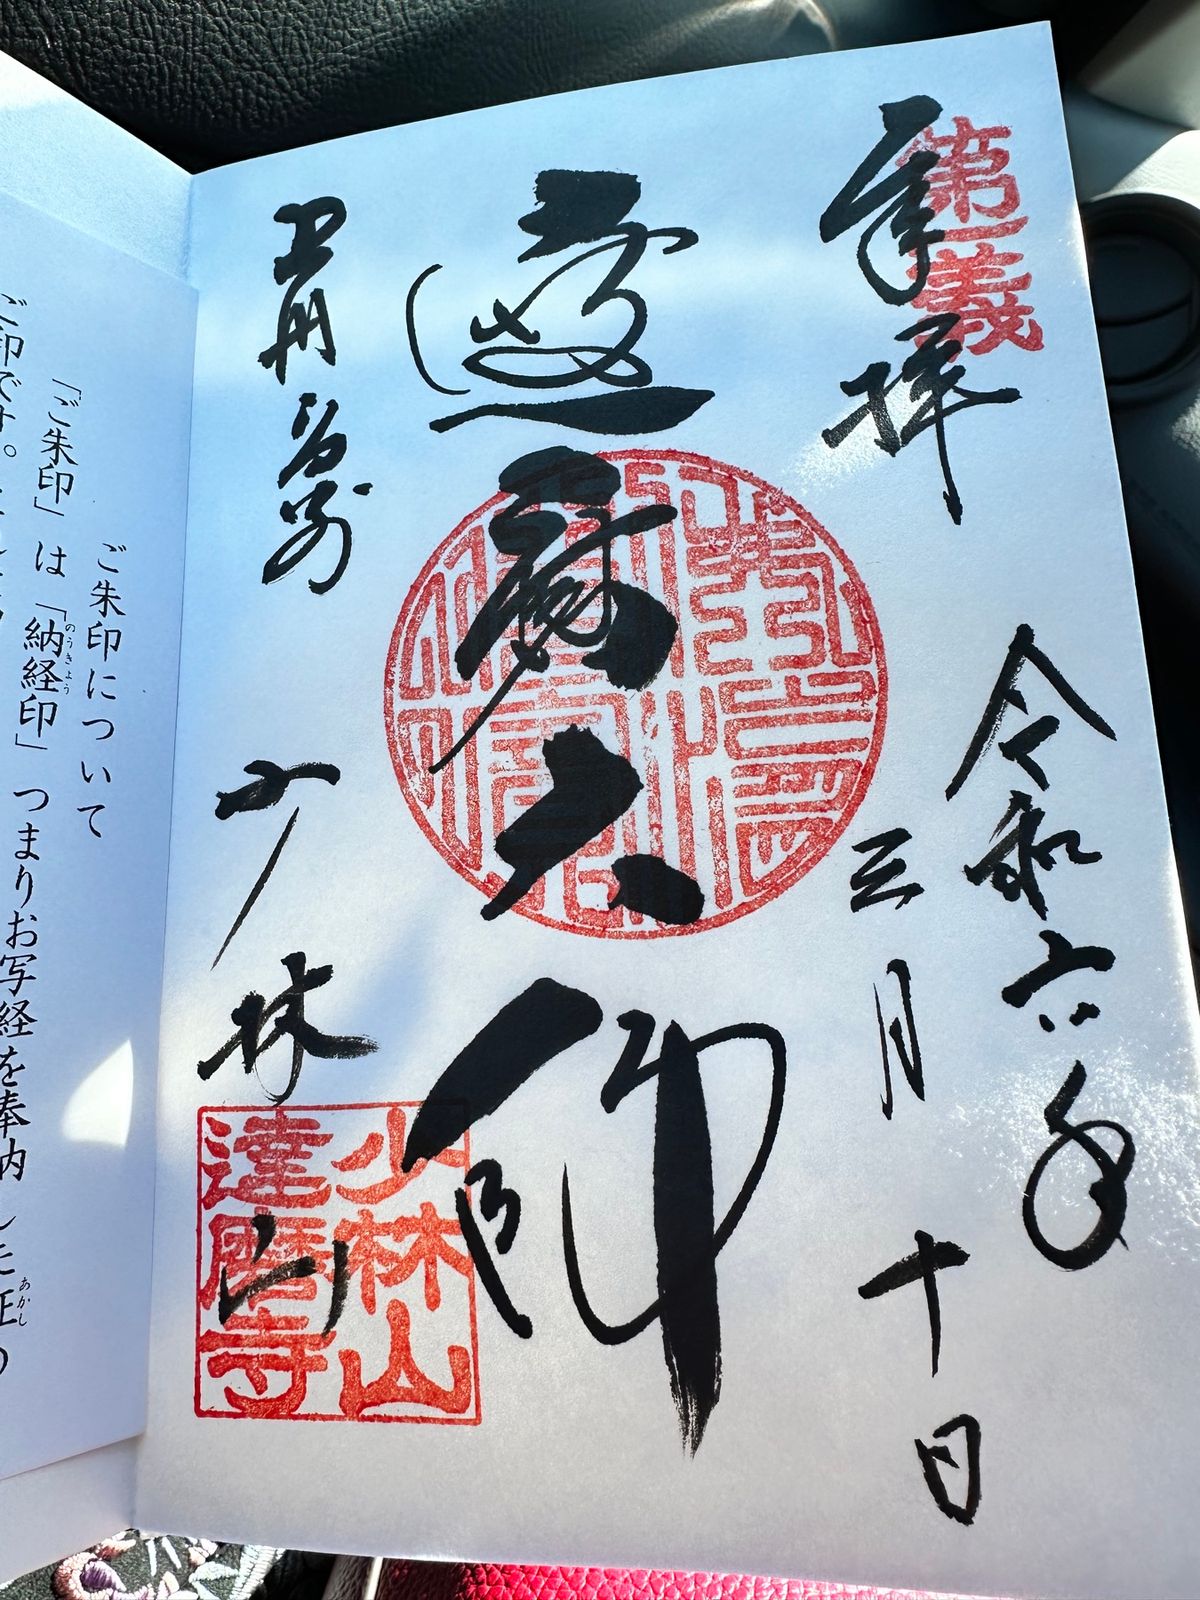 奉拝
第一義
令和六年
三月十日
達磨大師
上州
少林山
少林山
達磨寺
ご朱印について
「ご朱印」は「納経印」つまりお写経を奉内
のうきょう
あかし